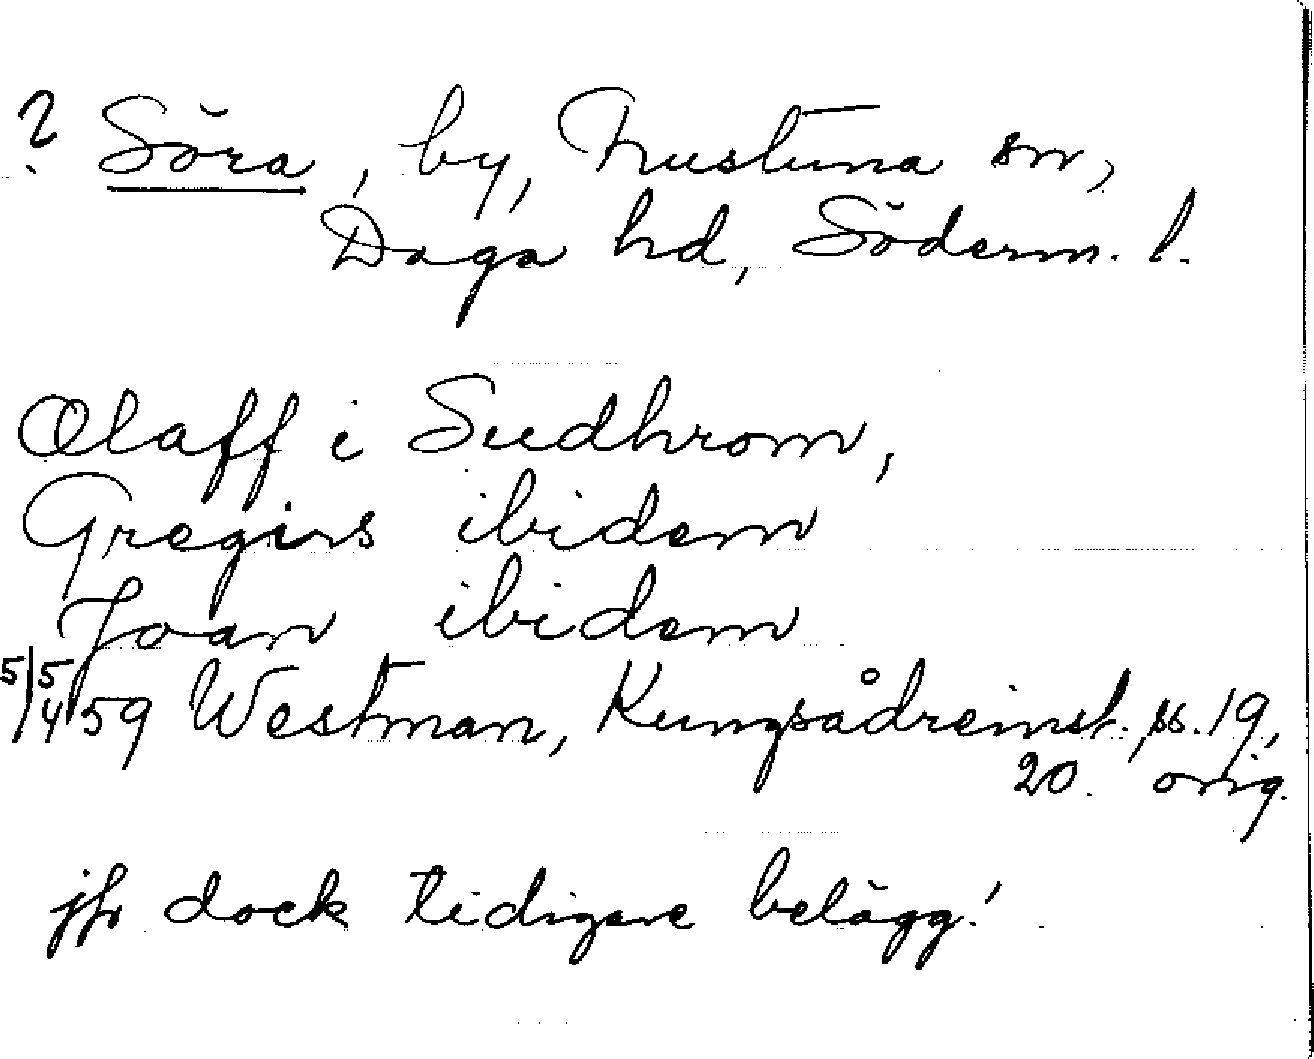 ? Söra, by, Frustuna sn,
Daga hd, Söderm. l.
Olaff i Sudhrom,
Gregirs ibidem
Joan ibidem
5/5 4 59 Westman, Kungsådreinst. ss. 19,
20. orig.
jfr dock tidigare belägg!